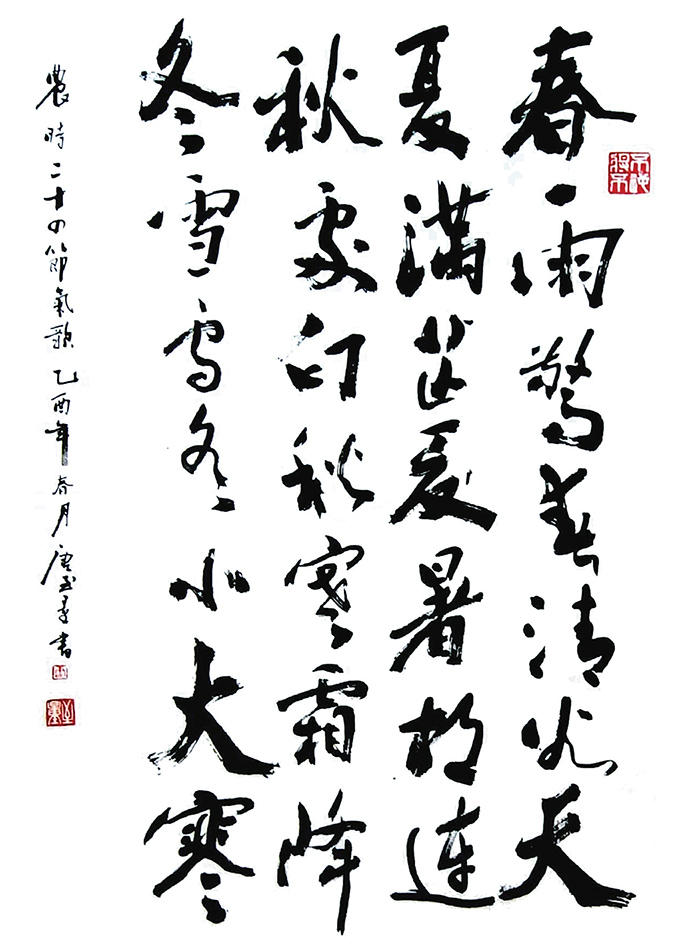 春雨驚春清谷天
夏滿芒夏暑相連
秋處秋寒霜降
冬雪雪冬小大寒
農時二十四節氣歌 乙酉年春月唐書